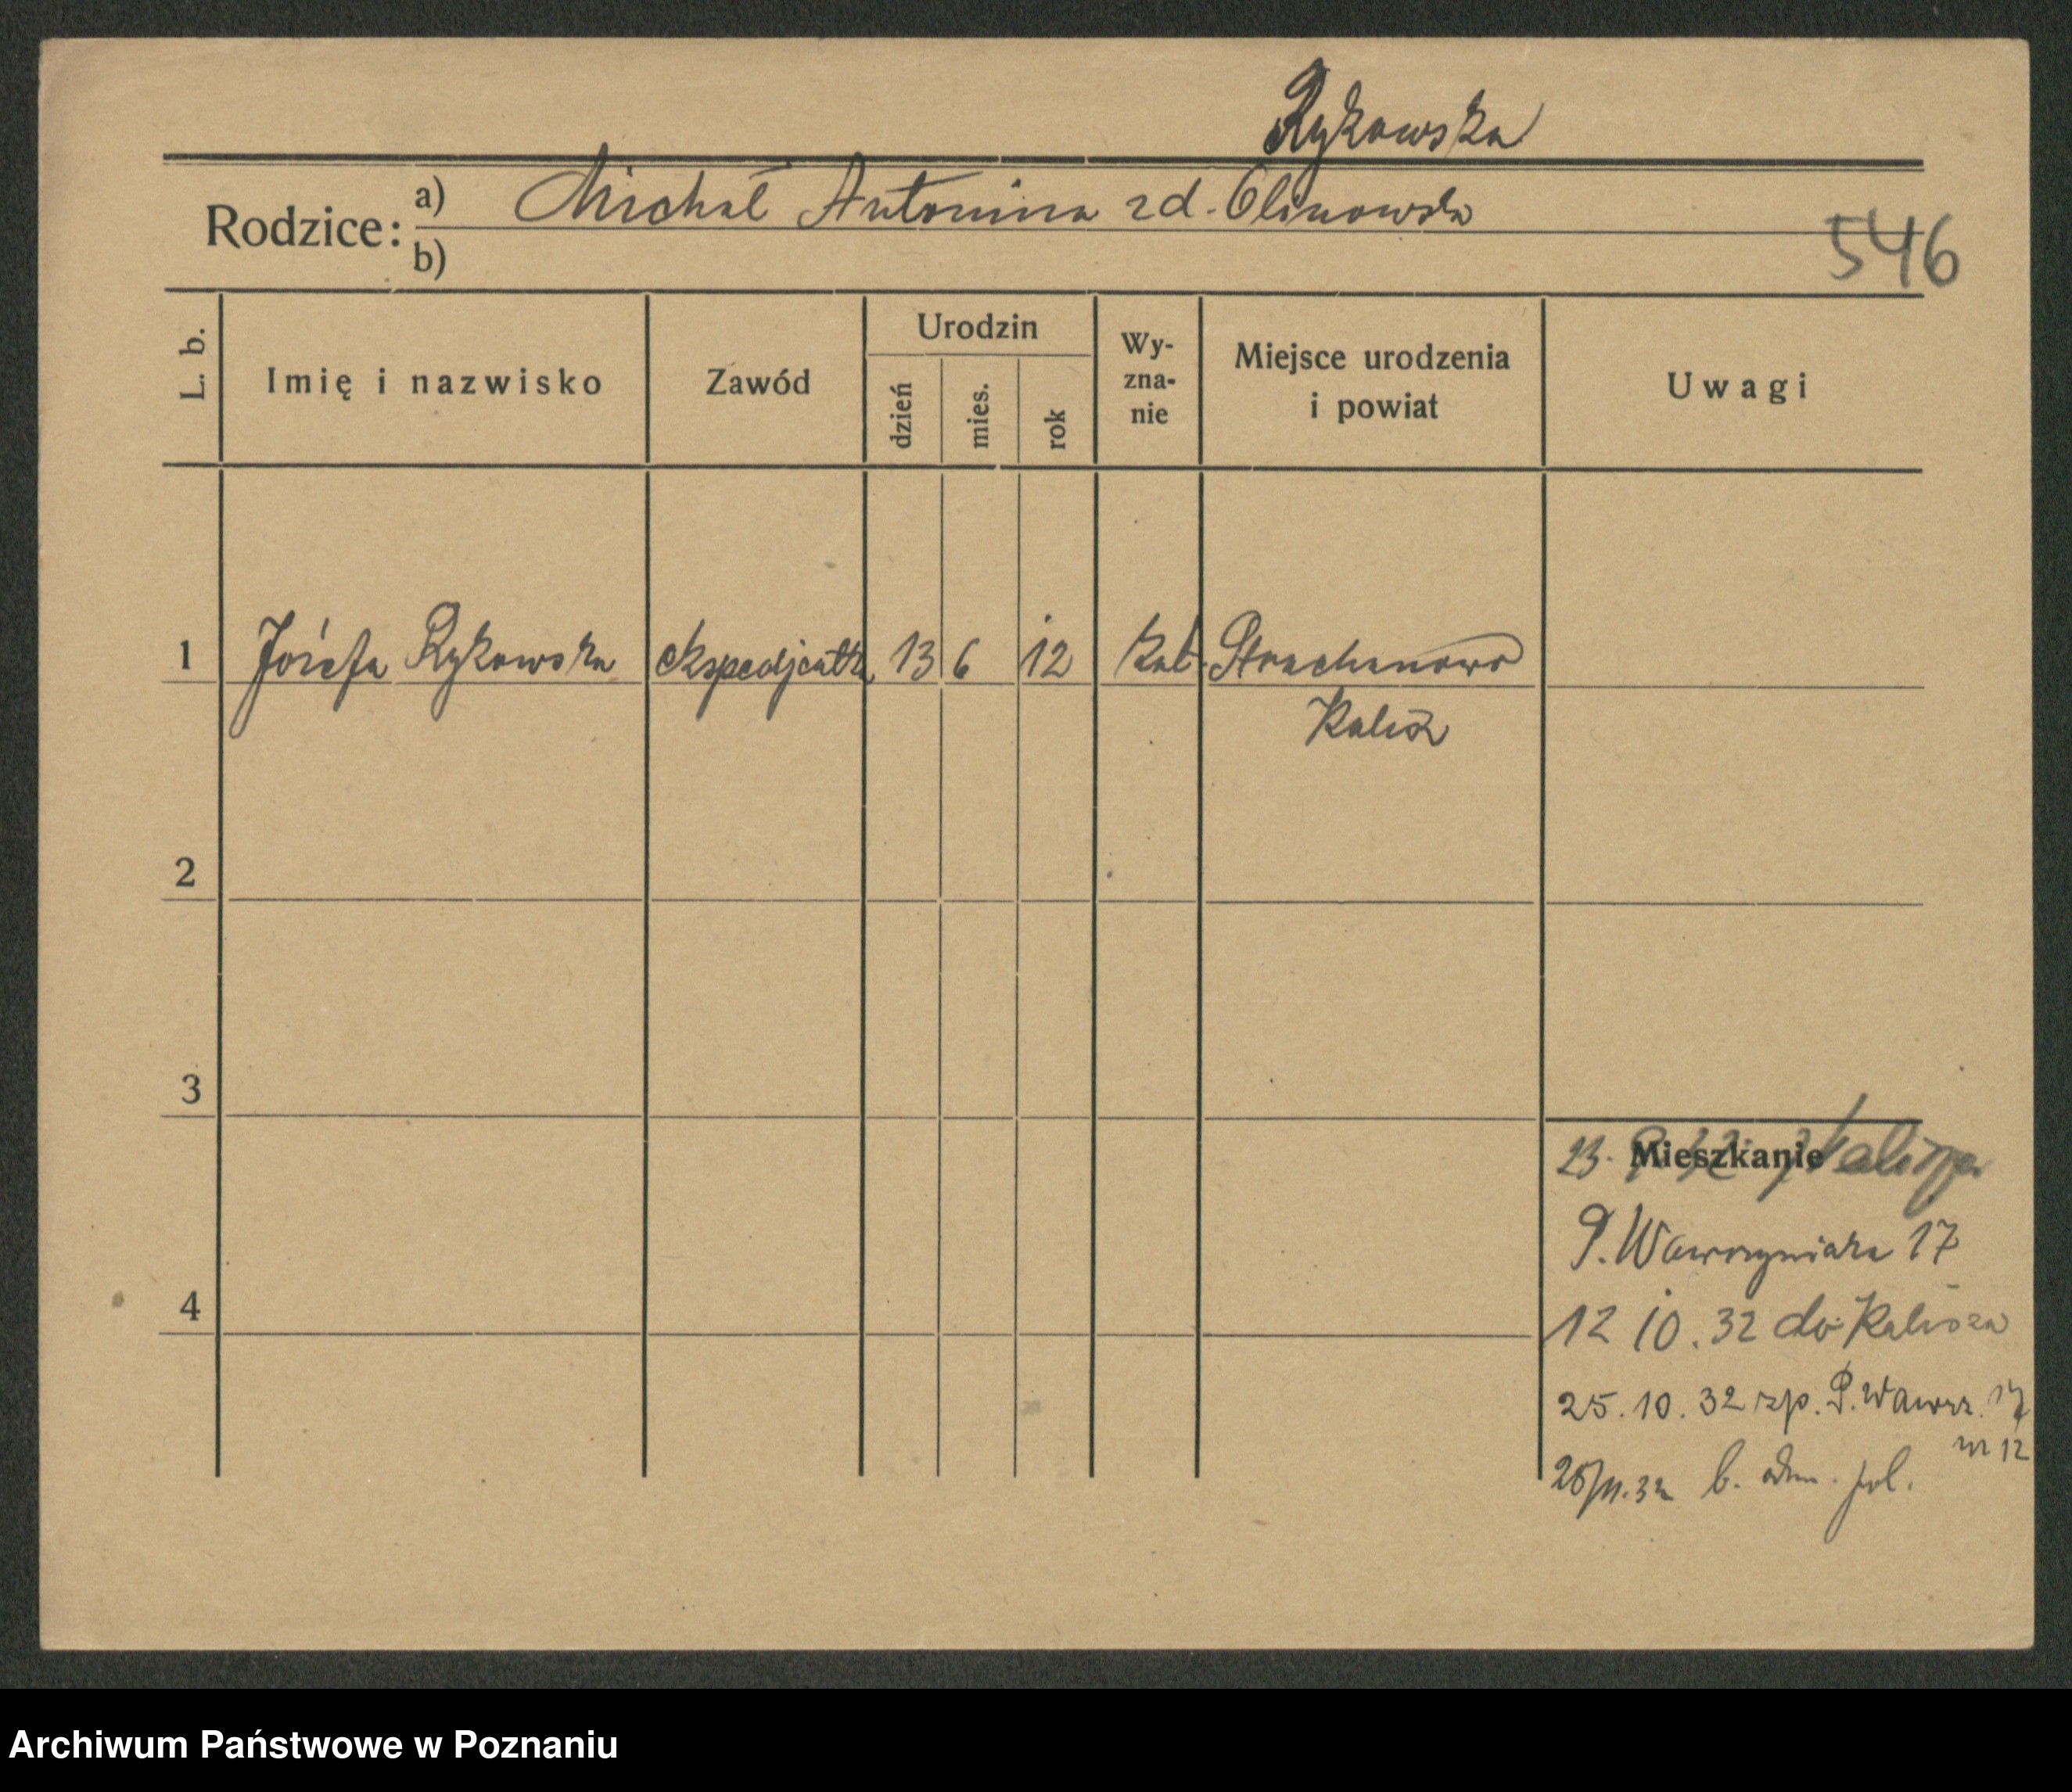 Rykowska
Rodzice: a) Michał Antonina zd. Olinowska
b)
546
L. b. Imię i nazwisko Zawód Urodzin dzień mies. rok Wy-zna-nie Miejsce urodzenia i powiat Uwagi
1 Józefa Rykowska ekspedjentka 13 6 12 kat. Strachanowo
Kalisz
2
3
Mieszkanie
23. z Kalisza
P. Wawrzyniaka 17
4
12 10. 32 do Kalisza
25. 10. 32 zp. P. Wawrz. 17
m 12
26/11. 32 b. adm. pol.
Archiwum Państwowe w Poznaniu